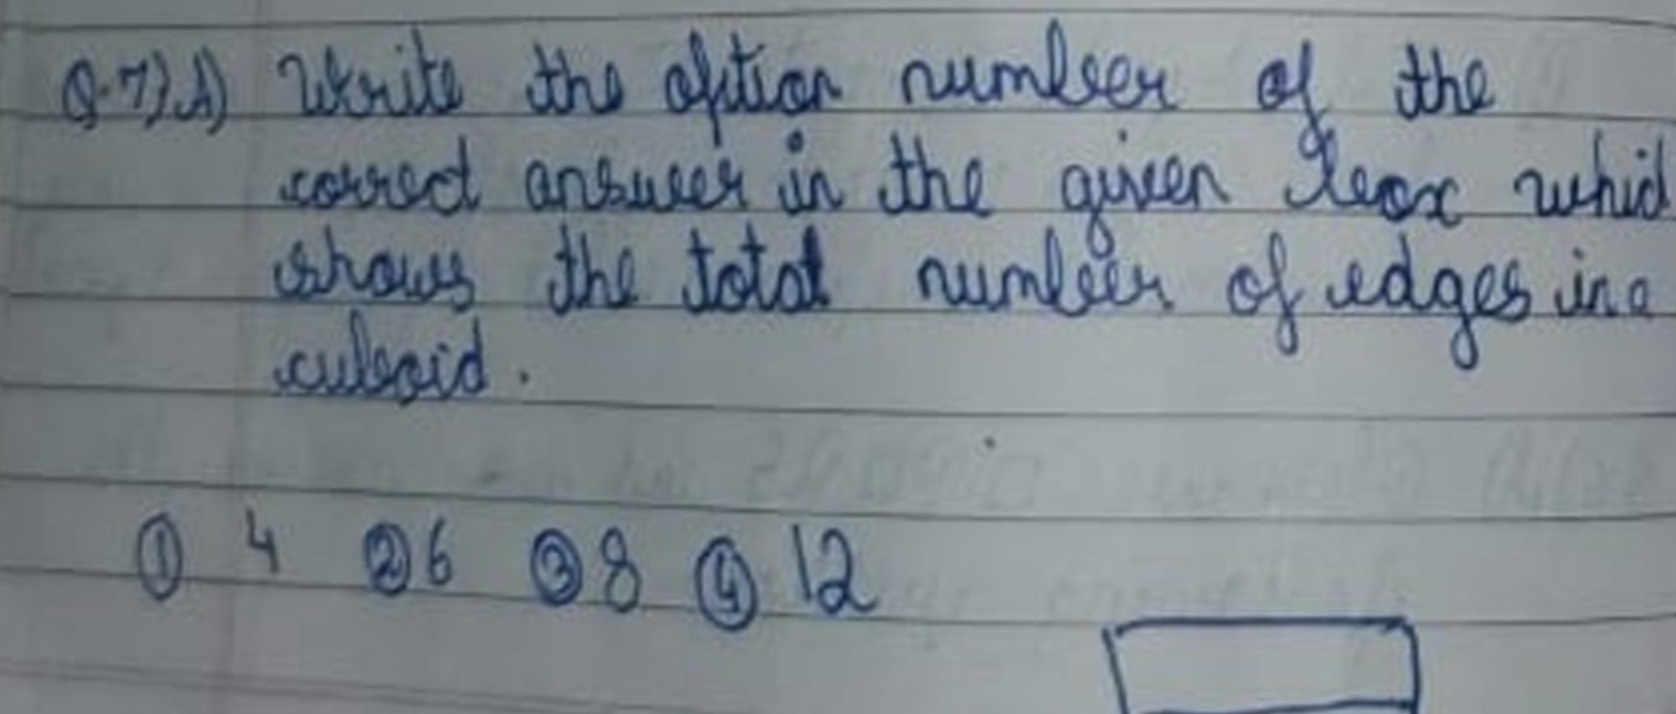 Q.7) A) Write the option number of the
correct answer in the given box which
shows the total number of edges in a
cuboid.
① 4 ② 6 ③ 8 ④ 12